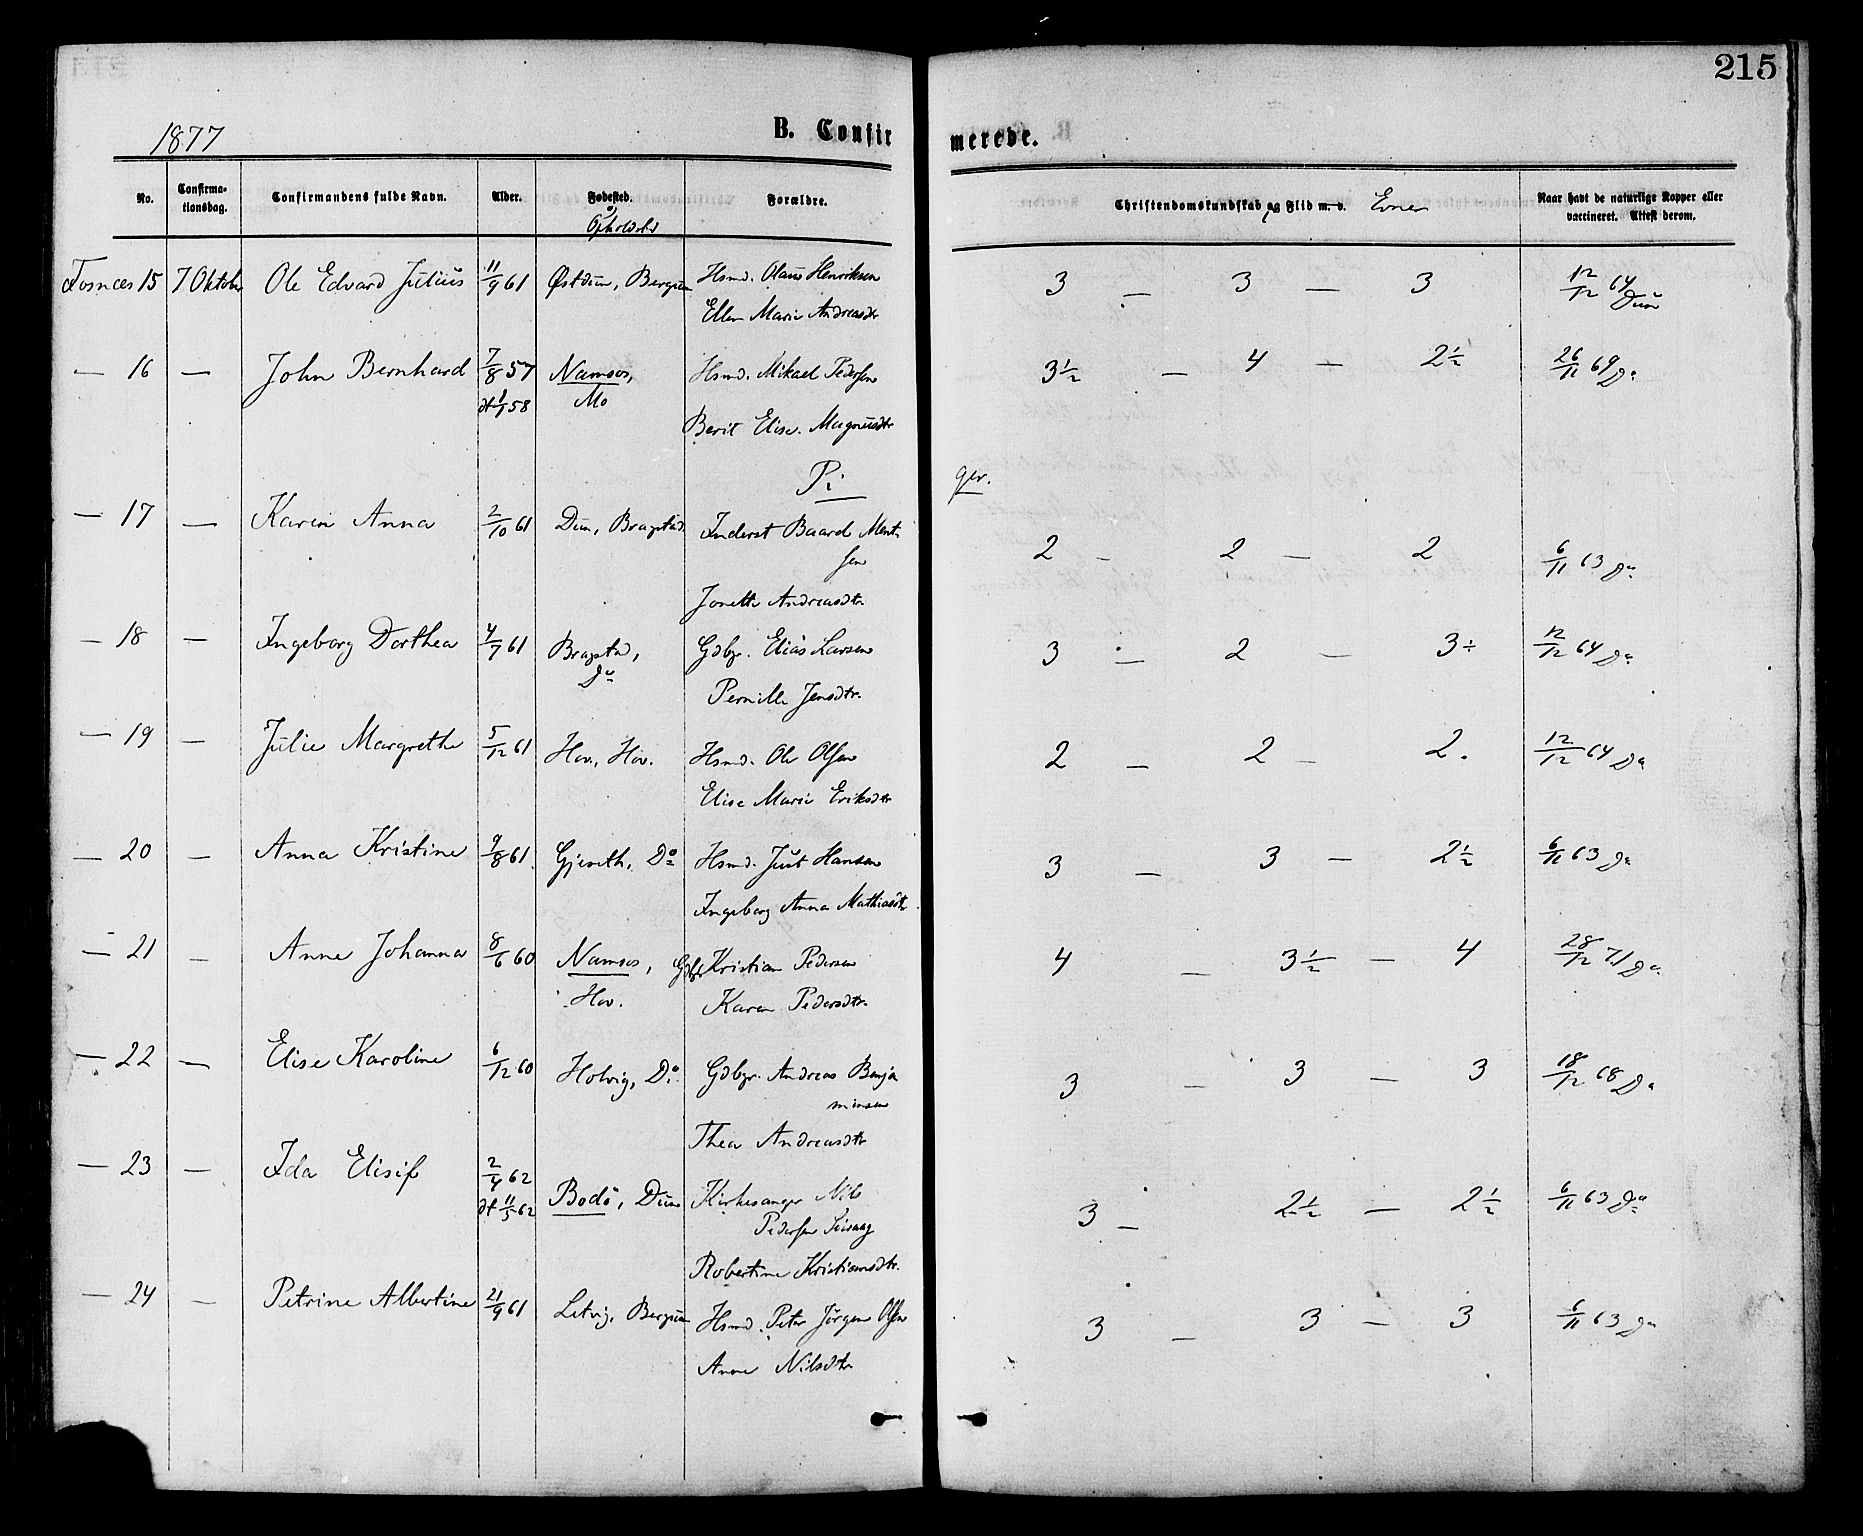 215
1877
B. Confirmerede.
No. Confirmationsdag. Confirmandens fulde Navn. Alder. Fødested. Forældre. Christendomskundskab og Flid m. v. Evner Naar havt de naturlige Kopper eller vaccineret. Attest derom.
Opholdsted
Fosnæs 15 7 Oktober Ole Edvard Julius 11/9 61 Østduun, Bergsun Hsmd. Olaus Henriksen 3 — 3 — 3 12/12 64 Duun
Ellen Marie Andreasdtr
— 16 — John Bernhard 7/8 57 Namsos, Hsmd. Mikael Pedersen 3 1/2 — 4 — 2 1/2 26/11 69 Do
dt 1/1 58 Mo
Berit Elise Magnusdtr
Piger.
— 17 — Karen Anna 2/10 61 Duun, Bragstad Inderst Baard Ment- 2 — 2 — 2 6/11 63 Do
sen
Jonetta Andreasdtr.
— 18 — Ingeborg Dorthea 4/7 61 Bragstad, Gdbgr. Elias Larsen 3 — 2 — 3÷ 12/12 64 Do
Do Pernille Jensdtr.
— 19 — Julie Margrethe 5/12 61 Hov, Hov. Hsmd. Ole Olsen 2 — 2 — 2. 12/12 64 Do
Elise Marie Eriksdtr
— 20 — Anna Kristine 9/8 61. Do Hsmd. Just Hansen 3 — 3 — 2 1/2 6/11 63 Do
Ingeborg Anna Mathiasdtr
— 21 — Anne Johanna 8/6 60 Namsos, Gdbgr Kristian Pedersen 4 — 3 1/2 — 4 28/12 71 Do
Hov. Karen Pedersdtr.
— 22 — Elise Karoline 6/12 60 Holvig, Do. Gdbgr. Andreas Benja 3 — 3 — 3 18/12 68 Do
minsen
Thea Andreasdtr
— 23 — Ida Elisif 2/4 62
dt 11/5 62 Bodø, Duun Kirkesanger Nils 3 — 2 1/2 — 2 1/2 6/11 63 Do
Pedersen
Robertine Kristiansdtr.
— 24 — Petrine Albertine 21/9 61 Letvig, Bergsun Hsmd. Peter Jørgen Olsen 3 — 3 — 3 6/11 63 Do
Anne Nilsdtr